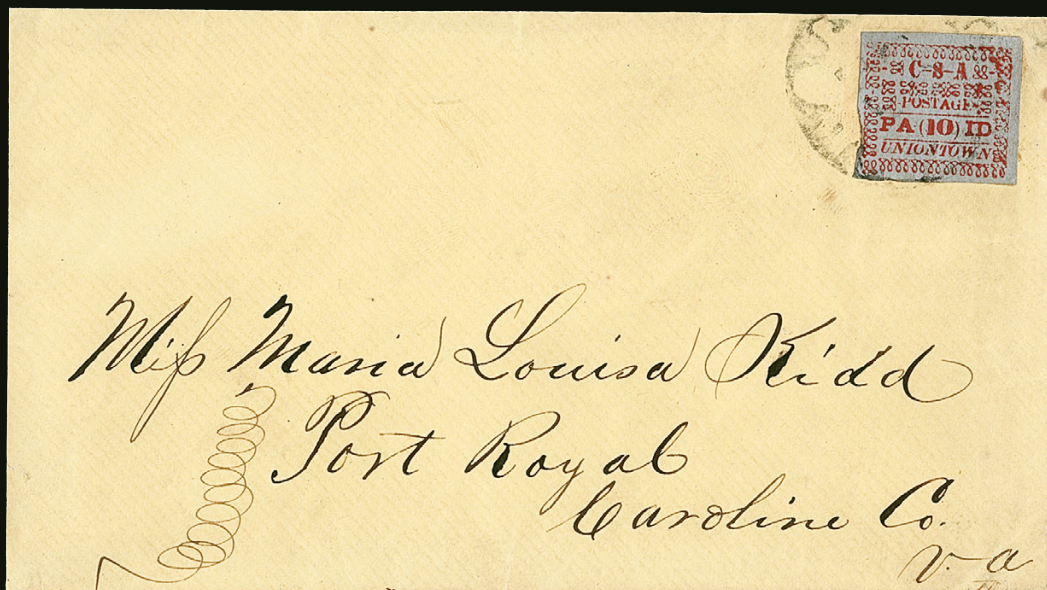 C-S-A
POSTAGE
PA(10)ID
UNIONTOWN
Miſs Maria Louisa Kidd
Port Royal
Caroline Co.
Va